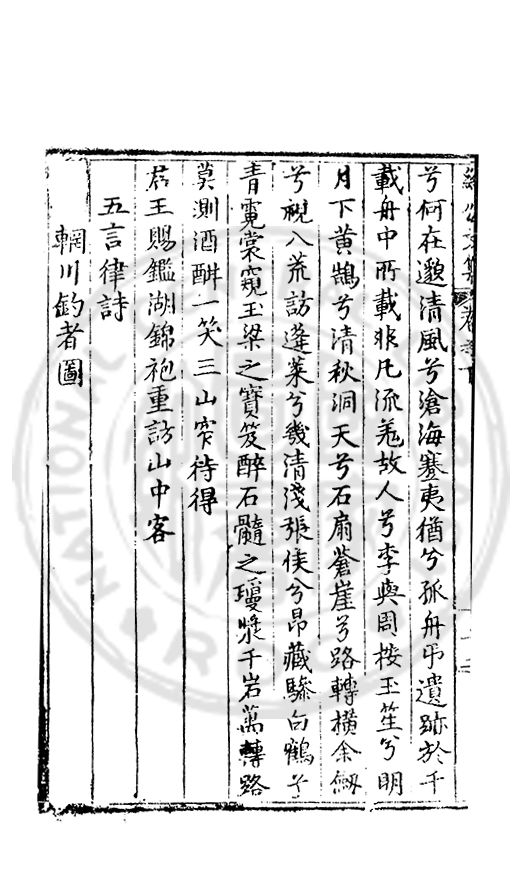 兮何在邀清風兮滄海蹇夷猶兮孤舟弔遺跡於千
載舟中所載非凡流羗故人兮李與周按玉笙兮明
月下黃鵠兮清秋洞天兮石扇蒼崖兮路轉橫余劒
兮視八荒訪蓬萊兮幾清淺張侯兮昂藏驂白鶴兮
青霓裳窺玉梁之寶笈醉石髓之瓊漿千岩萬轉路
莫測酒酣一笑三山窄待得
君王賜鑑湖錦袍重訪山中客
五言律詩
輞川釣者圖